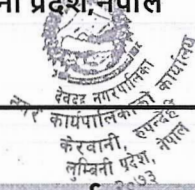 नी प्रदेश,नेपाल
देवदह नगरपालिका
नगर कार्यपालिकाको कार्यालय
केरवानी, रुपन्देही
लुम्बिनी प्रदेश, नेपाल
२०७३